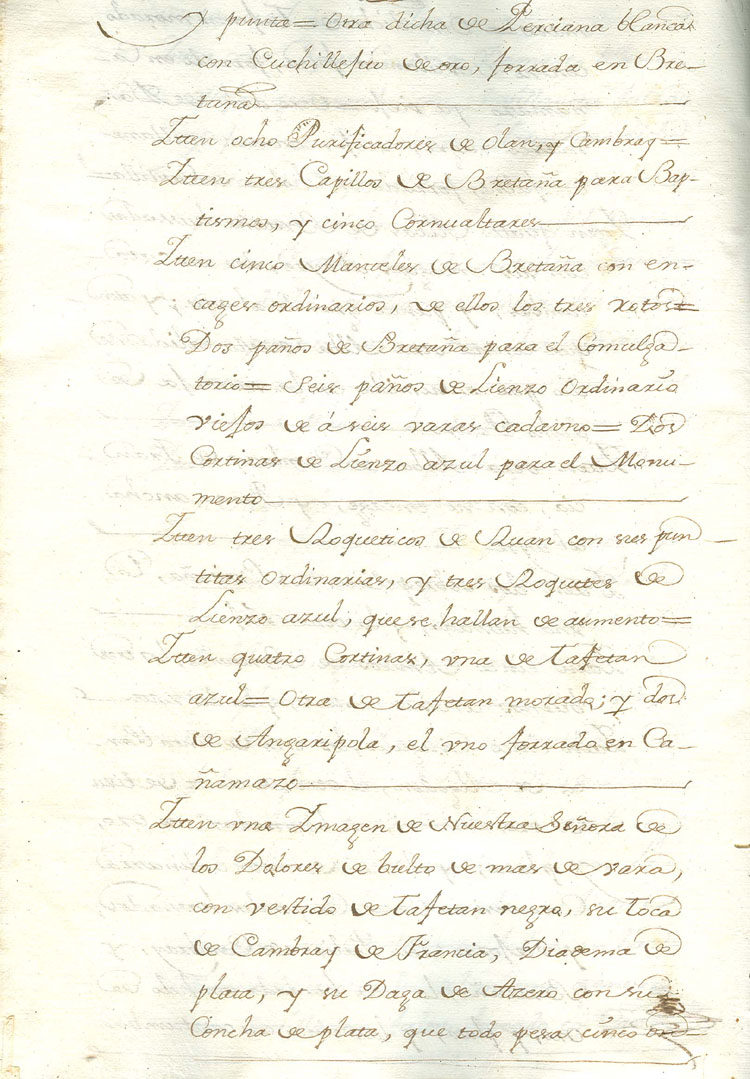 y punta= Otra dicha de Perciana blanca
con Cuchillejito de oro, forrada en Bre-
taña
Itten ocho Purificadores de Olan, y Cambray=
Itten tres Capillos de Bretaña para Bap-
tismos, y cinco Cornualtares
Itten cinco Manteles de Bretaña con en-
cages ordinarios, de ellos los tres rotos=
Dos paños de Bretaña para el Comulga-
torio= Seis paños de Lienzo Ordinario
viejos de á seis varas cadauno= Dos
Cortinas de Lienzo azul para el Monu-
mento
Itten tres Roqueticos de Ruan con sus pun
titas Ordinarias, y tres Roquetes de
Lienzo azul, que se hallan de aumento=
Itten quatro Cortinas, vna de Tafetan
azul= Otra de Tafetan morado; y dos
de Angaripola, el vno forrado en Ca-
ñamazo
Itten vna Imagen de Nuestra Señora de
los Dolores de bulto de mas de vara,
con vestido de Tafetan negro, su Toca
de Cambray de Francia, Diadema de
plata, y su Daga de Azero con su
Concha de plata, que todo pesa cinco on